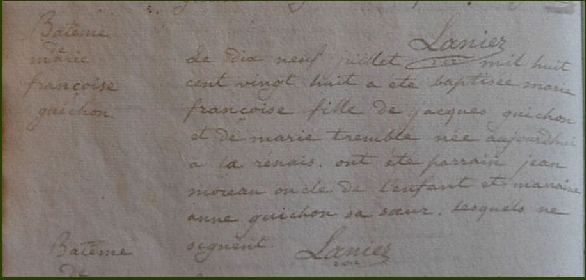 Batême
de
marie
françoise
guichon
Laniez
Le dix neuf juillet mil huit
cent vingt huit a ete baptisée marie
françoise fille de jacques guichon
et de marie tremble née aujourdhui
a la renais. ont éte parrain jean
moreau oncle de l'enfant et marraine
anne guichon sa sœur. lesquels ne
signent Laniez
Batême
de